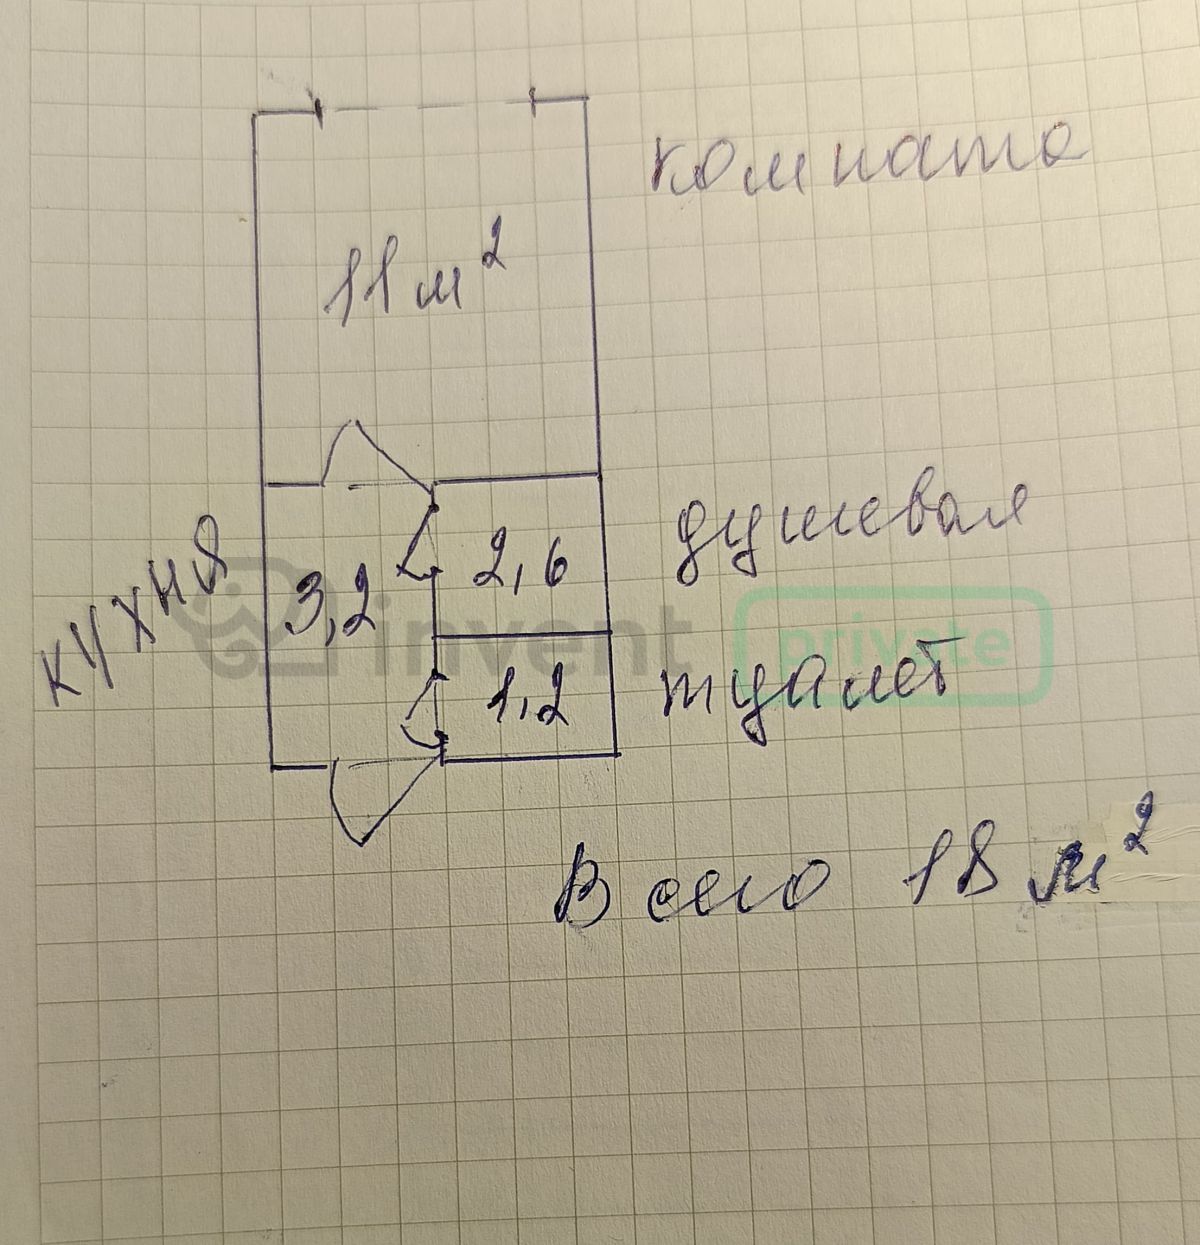 комната
11 м²
кухня
3,2
2,6
душевая
invent
private
1,2
туалет
Всего 18 м²